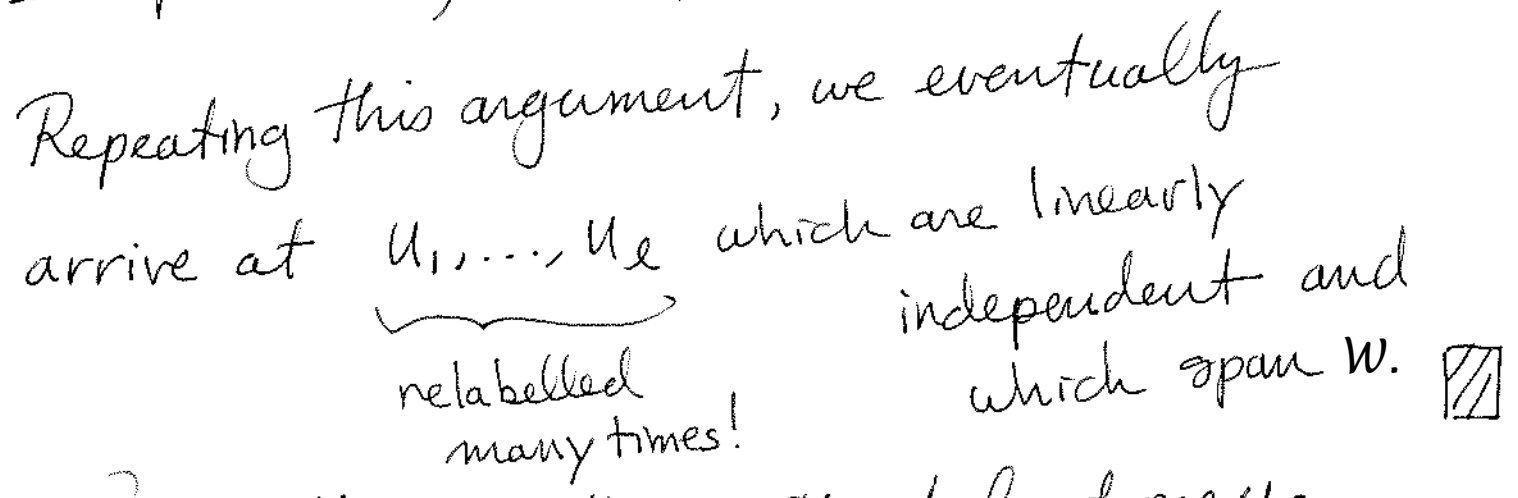 Repeating this argument, we eventually
arrive at u₁,..., uₗ which are linearly
independent and
which span W.
relabelled
many times!